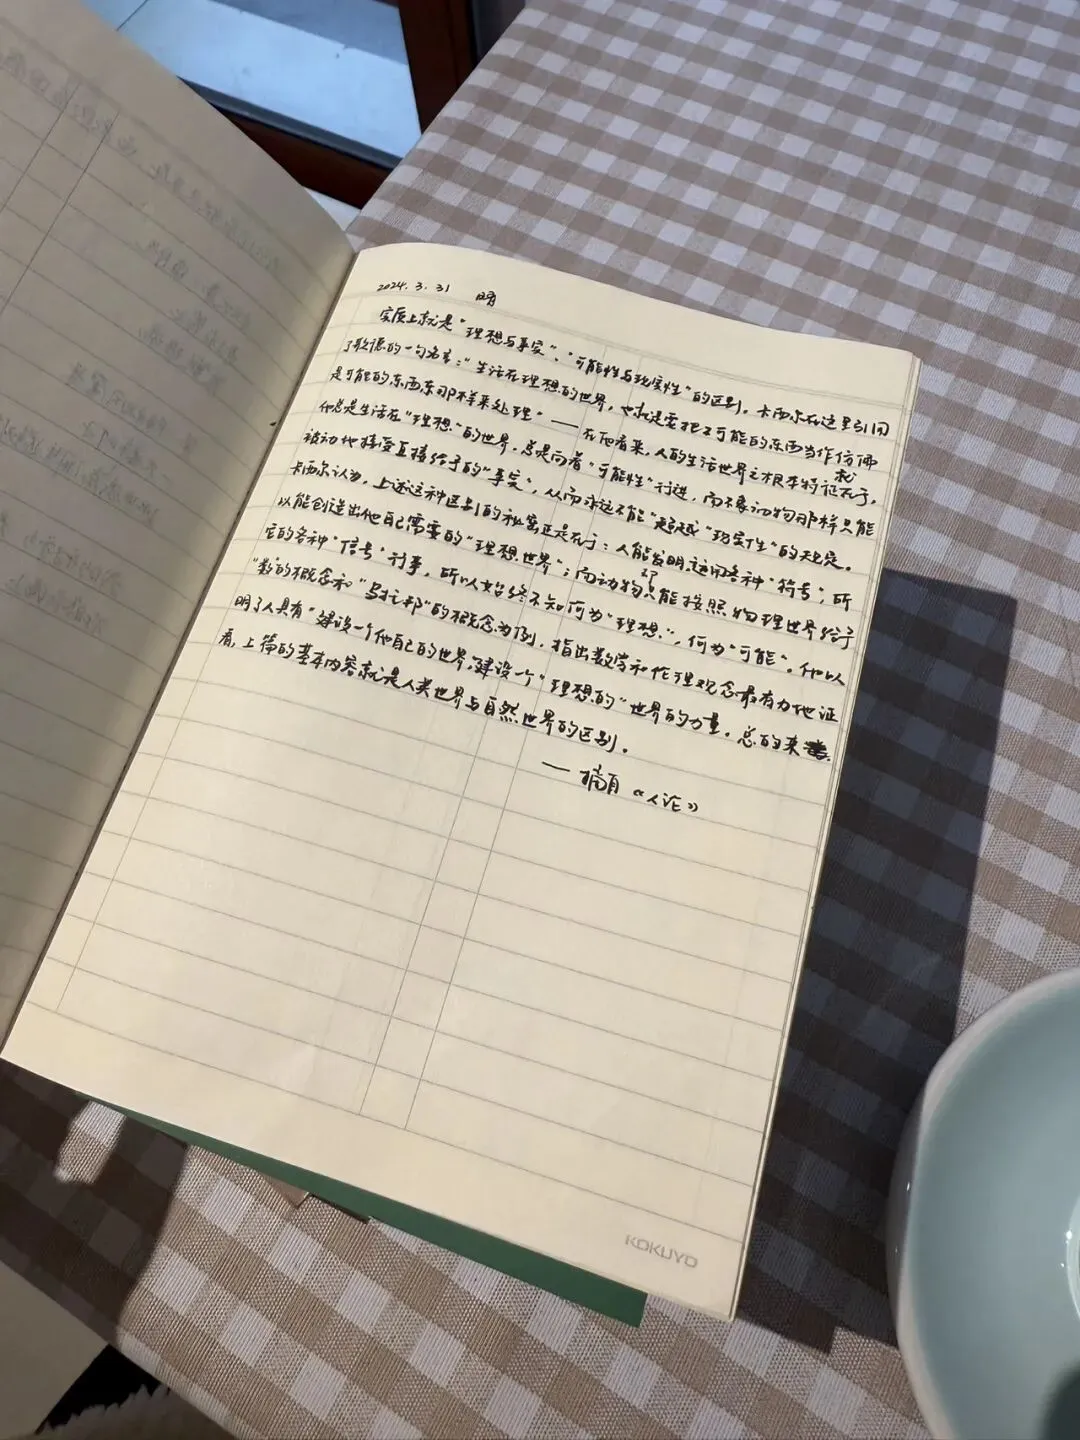 2024.3.31 晴
实质上就是“理想与事实”、“可能性与现实性”的区别。卡西尔在这里引用
了歌德的一句名言：“生活在理想的世界，也就是要把不可能的东西当作仿佛
是可能的东西东那样来处理”——在他看来，人的生活世界之根本特征就在于，
他总是生活在“理想”的世界，总是向着“可能性”行进，而不象动物那样只能
被动地接受直接给予的“事实”，从而永远不能“超越”“现实性”的规定。
卡西尔认为，上述这种区别的秘密正是在于：人能发明、运用各种“符号”，所
以能创造出他自己需要的“理想世界”；而动物却只能按照物理世界给予
它的各种“信号”行事，所以始终不知何为“理想”，何为“可能”。他以
“数”的概念和“乌托邦”的概念为例，指出数学和伦理观念最有力地证
明了人具有“建设一个他自己的世界，建设一个“理想的”世界的力量。总的来
看，上篇的基本内容就是人类世界与自然世界的区别。
——摘自《人论》
KOKUYO